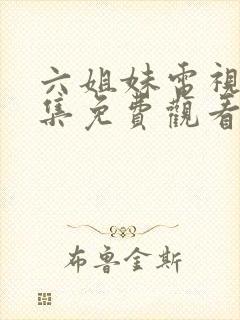 六姐妹電視
集免費觀看
布魯金斯